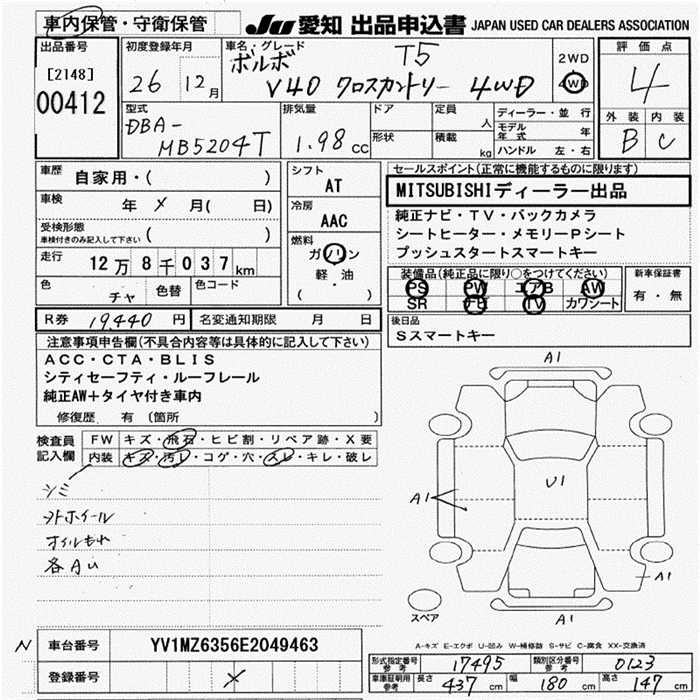 車内保管・守衛保管
JU 愛知 出品申込書 JAPAN USED CAR DEALERS ASSOCIATION
出品番号
[2148]
00412
初度登録年月
26 12月
車名・グレード
ボルボ T5
V40 クロスカントリー 4WD
2WD
4WD
評価点
4
外装 内装
B C
型式
DBA-
MB5204T
排気量
1.98 cc
ドア
形状
定員 人
積載 kg
ディーラー・並 行
モデル年式 年
ハンドル 左・右
車歴 自家用・( )
車検 年 × 月( 日)
受検形態
車検付きのみ記入して下さい ( )
走行 12万8千037km
色 チャ 色替 色コード
R券 19,440 円 名変通知期限 月 日
シフト
AT
冷房
AAC
燃料
ガソリン
軽・油
( )
セールスポイント(正常に機能するものに限ります)
MITSUBISHIディーラー出品
純正ナビ・TV・バックカメラ
シートヒーター・メモリーPシート
プッシュスタートスマートキー
装備品(純正品に限り○をつけてください)
PS PW エアB AW
SR ナビ TV カワシート
新車保証書
有・無
後日品
Sスマートキー
注意事項申告欄(不具合内容等は具体的に記入して下さい)
ACC・CTA・BLIS
シティセーフティ・ルーフレール
純正AW+タイヤ付き車内
修復歴 有 (箇所 )
検査員記入欄
FW キズ・飛石・ヒビ割・リペア跡・X要
内装 キズ・汚レ・コゲ・穴・スレ・キレ・破レ
シミ
外ホイール
オイルもれ
各AU
A1
U1
A1
A1
A1
スペア
A-キズ E-エクボ U-凹み W-補修跡 S-サビ C-腐食 XX-交換済
N 車台番号 YV1MZ6356E2049463
登録番号 ×
形式指定番号参考 17495 類別区分番号参考 0123
車庫証明用参考 長さ 437 cm 幅 180 cm 高さ 147 cm